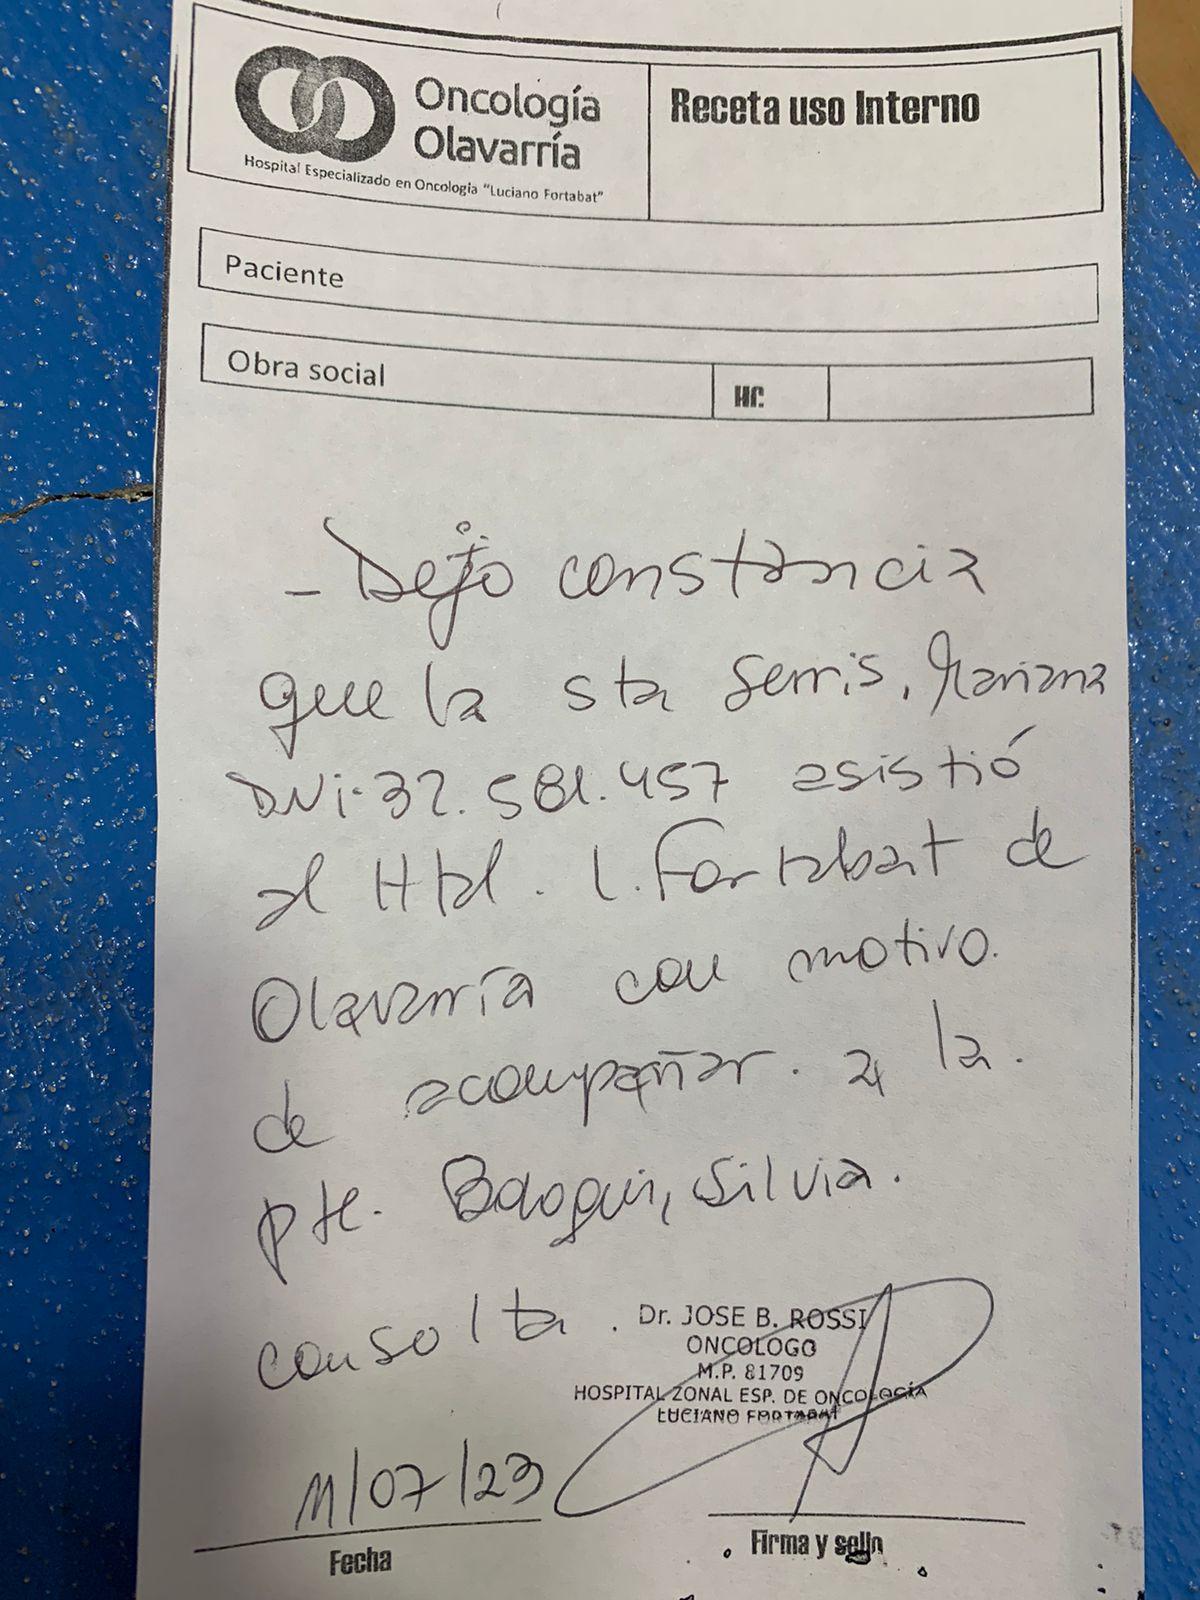 Oncología
Olavarría
Hospital Especializado en Oncología "Luciano Fortabat"
Receta uso Interno
Paciente
Obra social
HC:
- Dejo constancia
que la sta Serris, Mariana
DNi: 32.581.457 asistió
al Htal. L. Fortabat de
Olavarría con motivo.
de acompañar. a la.
pte. Silvia.
consolta.
Dr. JOSE B. ROSSI
ONCOLOGO
M.P. 81709
HOSPITAL ZONAL ESP. DE ONCOLOGÍA
LUCIANO FORTABAT
11/07/23
Fecha
Firma y sello